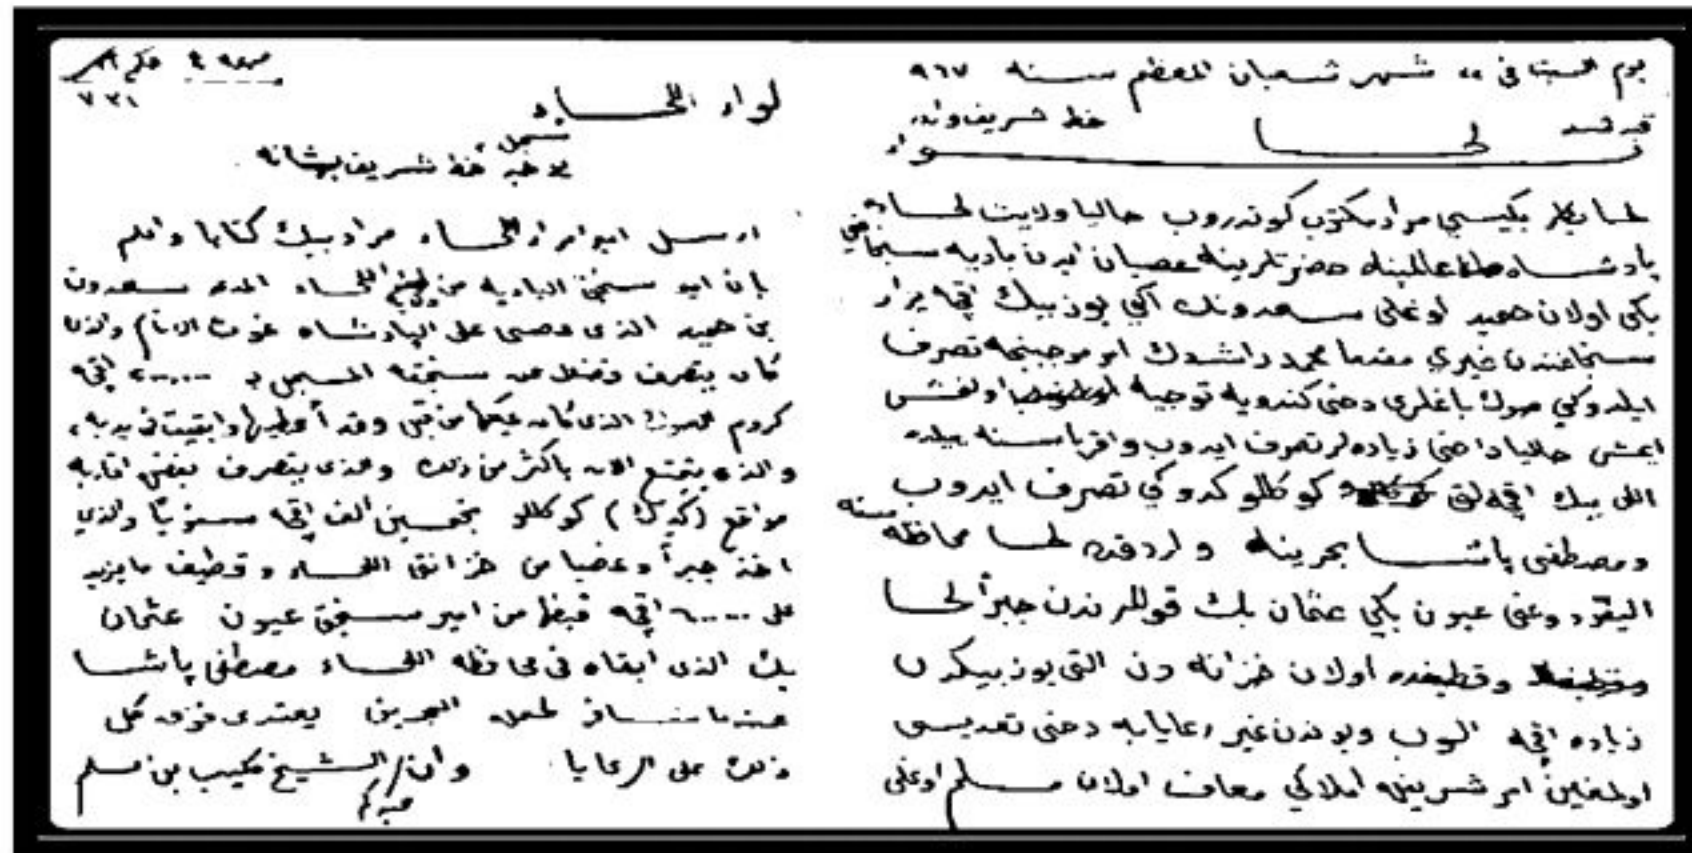 يوم السبت في ٢٢ شهر شعبان المعظم سنه ٩٦٧
خط شريف
لحسا
لحسا بكلر بكيسي مراد مكتوب كوندروب حاليا ولايت لحساده
پادشاه عالمپناه حضرتلرينه عصيان ايدن باديه سنجاغي
بكى اولان حميد اوغلى سعدونك اكي يوز بيك اقچه يزار
سنجاغندن غيري مقدما محمد راشدك امر موجبنجه تصرف
ايلدوكي باغلرى دخى كندويه توجيه اولنمش
ايمش حاليا داخى زياده لر تصرف ايدوب واقرباسنه
اللى بيك اقچه لق كوكللو كدوكي تصرف ايدوب
ومصطفى پاشا بحرينه واردقده لحسا محافظه سنه
اليقودوغى عيون بكي عثمان بك قوللرندن جبراً لحسا
وقطيفده اولان خزانه دن التى يوز بيكدن
زياده اقچه الوب وبوندن غير رعايايه دخى تعديسى
اولمغين امر شريفله املاكي معاف اولان مسلم اوغلى
حكم
٧٣١
لواء اللحساء
خط شريف بهشانه
ارسل امير امراء اللحساء مراد بيك كتابا واعلم
بان امير سنجق الباديه من اللحساء المدعو سعدون
بن حميد الذى عصى على الپادشاه غوث الانام والذى
كان يتصرف فضلا عن سنجقه المسجل بـ ٢٠٠٠٠٠ اقچه
كروم الذى كان من قبل وقد أعطيها وابقيت في يديه
والذى يتمتع الان باكثر من ذلك والذى يتصرف بعض اقاربه
مواقع (كديك) كوكللو بخمسين الف اقچه سنوياً والذي
اخذ جبراً وغصبا من خزائن اللحساء وقطيف ما يزيد
على ٦٠٠٠٠٠ اقچه قبضها من امير سنجق عيون عثمان
بك الذى ابقاه فى محافظه اللحساء مصطفى پاشا
عندما سافر البحرين يعتدى فوق كل
ذلك على الرعايا وان الشيخ بن مسلم